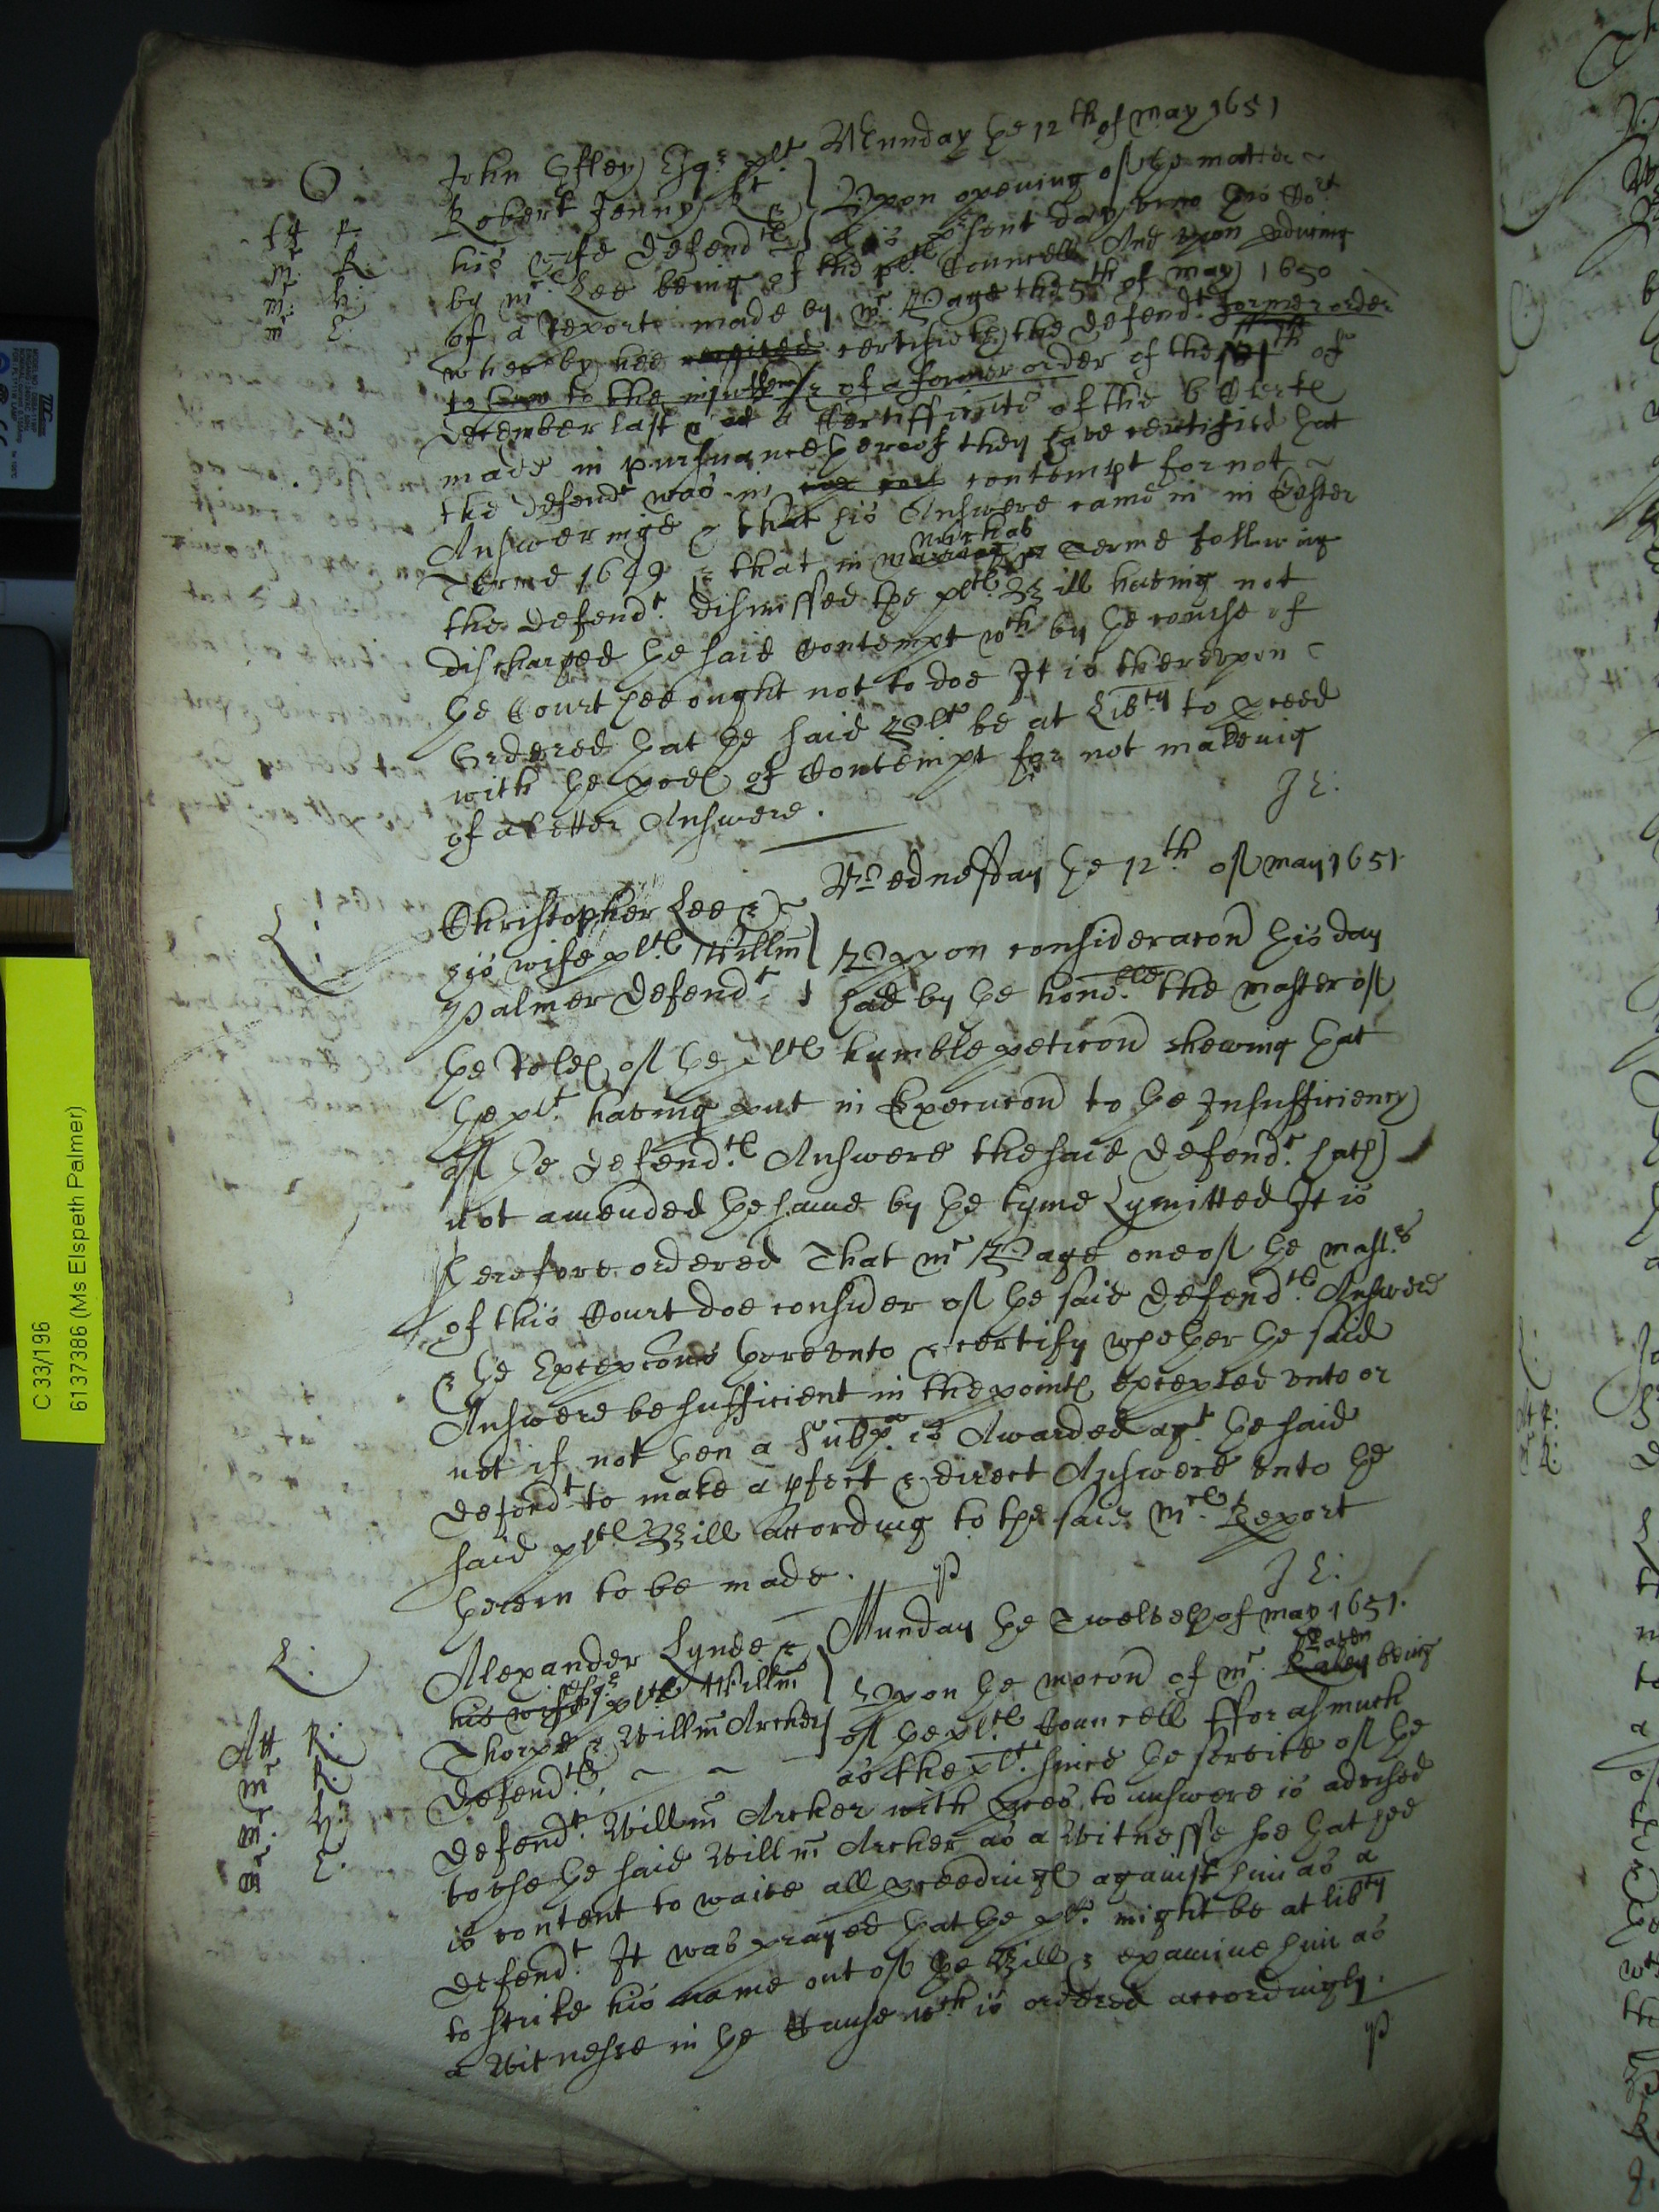 Munday the 12th of may 1651
O.
John Offley Esqr plt
Robert Jenny Kt & Upon opening of the matter
his wife defendtes this psent day unto this Cort
by mr Lee being of the pltes Councell And upon readinge
of a reporte made by mr Page the 5th of may 1650
whereby hee certifieth the defendt former order
to the of a former order of the of
december last & a Certifficate of the 6 Clerkes
made in pursuance thereof they have certified that
the defendt was in contempt for not
Answeringe & that his Answere came in in Easter
Terme 1649 & that in michas Terme following
the defendt dismissed the pltes Bill having not
discharged the said Contempt wch by the course of
the Court hee ought not to doe It is thereupon
Ordered that the said Plt be at Libty to pceed
with the pces of Contempt for not makeing
of a better Answere.
J E:
Wednesday the 12th of may 1651
L:
Christopher Lee &
his wife pltes Willm Uppon consideracon this day
Palmer defendt had by the honoble the master of
the Roles of the pltes humble peticon shewing that
the plt having put in Excepcons to the Insufficiency
of the defendtes Answere the said defendt hath
not amended the same by the tyme Lymitted It is
therefore ordered That mr Page one of the masters
of this Court doe consider of the said defendtes Answere
& the Excepcons thereunto & certify whether the said
Answere be sufficient in the pointes excepted unto or
not if not then a Subpa is Awarded agt the said
defendt to make a pfect & direct Answere unto the
said pltes Bill according to the said mres Report
therein to be made.
p
J E:
Munday the Twelveth of may 1651.
L:
Alexander Lynde
his wife Esqr plt Willm Upon the mocon of mr being
Thorpe & Willm Archer of the pltes Councell fforasmuch
defendtes as the plt since the service of the
Att R:
mr R:
mr H:
mr E:
defendt Willm Archer with pces to answere is advised
to use the said Willm Archer as a Witnesse soe that hee
is content to waive all pceedinges against him as a
defendt It was prayed that the plt might be at libty
to strike his name out of the Bill & examine him as
a Witnesse in the Cause wch is ordered accordingly.
p
C 33/196
6137386 (Ms Elspeth Palmer)